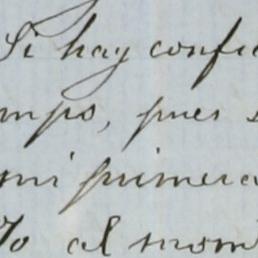 Si hay confi
mpo, pues
mi primera
% al mom